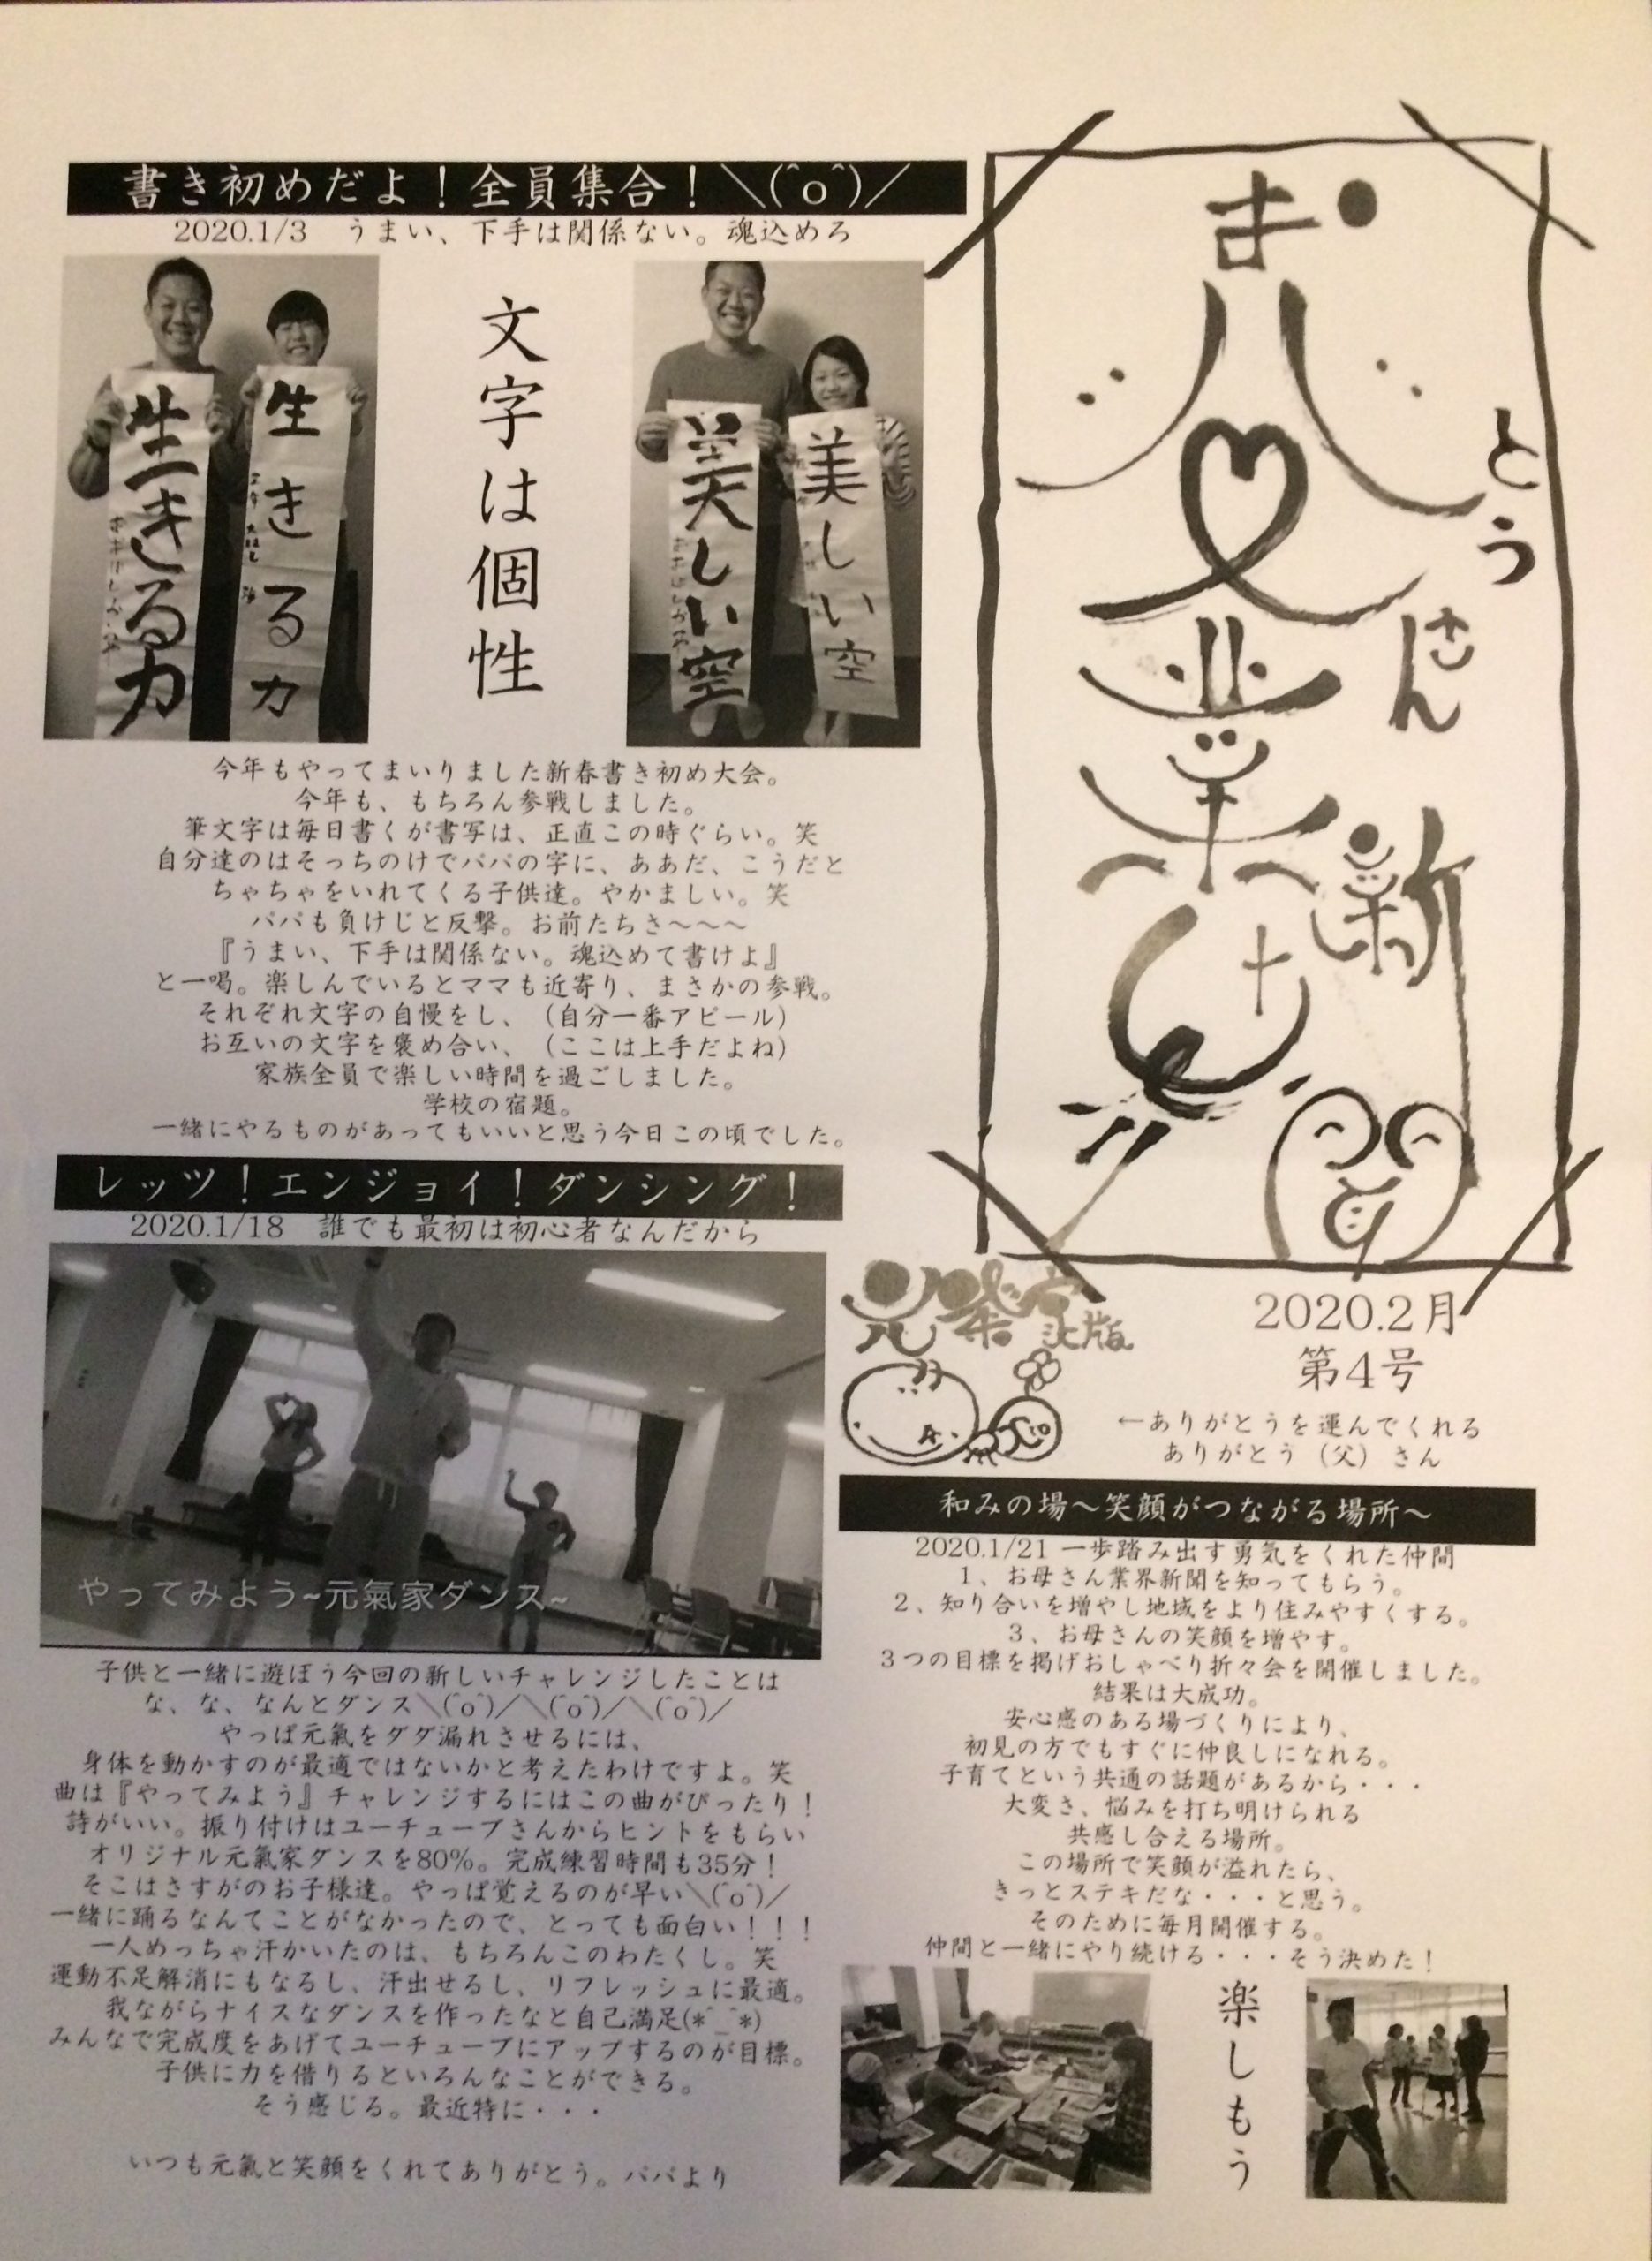 お父とうさん業界新聞
2020.2月
第4号
←ありがとうを運んでくれる
ありがとう（父）さん
書き初めだよ！全員集合！＼(^o^)／
2020.1/3　うまい、下手は関係ない。魂込めろ
生きる力
生きる力
文字は個性
美しい空
美しい空
今年もやってまいりました新春書き初め大会。
今年も、もちろん参戦しました。
筆文字は毎日書くが書写は、正直この時ぐらい。笑
自分達のはそっちのけでパパの字に、ああだ、こうだと
ちゃちゃをいれてくる子供達。やかましい。笑
パパも負けじと反撃。お前たちさ〜〜〜
『うまい、下手は関係ない。魂込めて書けよ』
と一喝。楽しんでいるとママも近寄り、まさかの参戦。
それぞれ文字の自慢をし、（自分一番アピール）
お互いの文字を褒め合い、（ここは上手だよね）
家族全員で楽しい時間を過ごしました。
学校の宿題。
一緒にやるものがあってもいいと思う今日この頃でした。
レッツ！エンジョイ！ダンシング！
2020.1/18　誰でも最初は初心者なんだから
やってみよう~元氣家ダンス~
子供と一緒に遊ぼう今回の新しいチャレンジしたことは
な、な、なんとダンス＼(^o^)／＼(^o^)／＼(^o^)／
やっぱ元氣をダダ漏れさせるには、
身体を動かすのが最適ではないかと考えたわけですよ。笑
曲は『やってみよう』チャレンジするにはこの曲がぴったり！
詩がいい。振り付けはユーチューブさんからヒントをもらい
オリジナル元氣家ダンスを80%。完成練習時間も35分！
そこはさすがのお子様達。やっぱ覚えるのが早い＼(^o^)／
一緒に踊るなんてことがなかったので、とっても面白い！！！
一人めっちゃ汗かいたのは、もちろんこのわたくし。笑
運動不足解消にもなるし、汗出せるし、リフレッシュに最適。
我ながらナイスなダンスを作ったなと自己満足(*^_^*)
みんなで完成度をあげてユーチューブにアップするのが目標。
子供に力を借りるといろんなことができる。
そう感じる。最近特に・・・
いつも元氣と笑顔をくれてありがとう。パパより
和みの場〜笑顔がつながる場所〜
2020.1/21 一歩踏み出す勇気をくれた仲間
1、お母さん業界新聞を知ってもらう。
2、知り合いを増やし地域をより住みやすくする。
3、お母さんの笑顔を増やす。
3つの目標を掲げおしゃべり折々会を開催しました。
結果は大成功。
安心感のある場づくりにより、
初見の方でもすぐに仲良しになれる。
子育てという共通の話題があるから・・・
大変さ、悩みを打ち明けられる
共感し合える場所。
この場所で笑顔が溢れたら、
きっとステキだな・・・と思う。
そのために毎月開催する。
仲間と一緒にやり続ける・・・そう決めた！
楽しもう